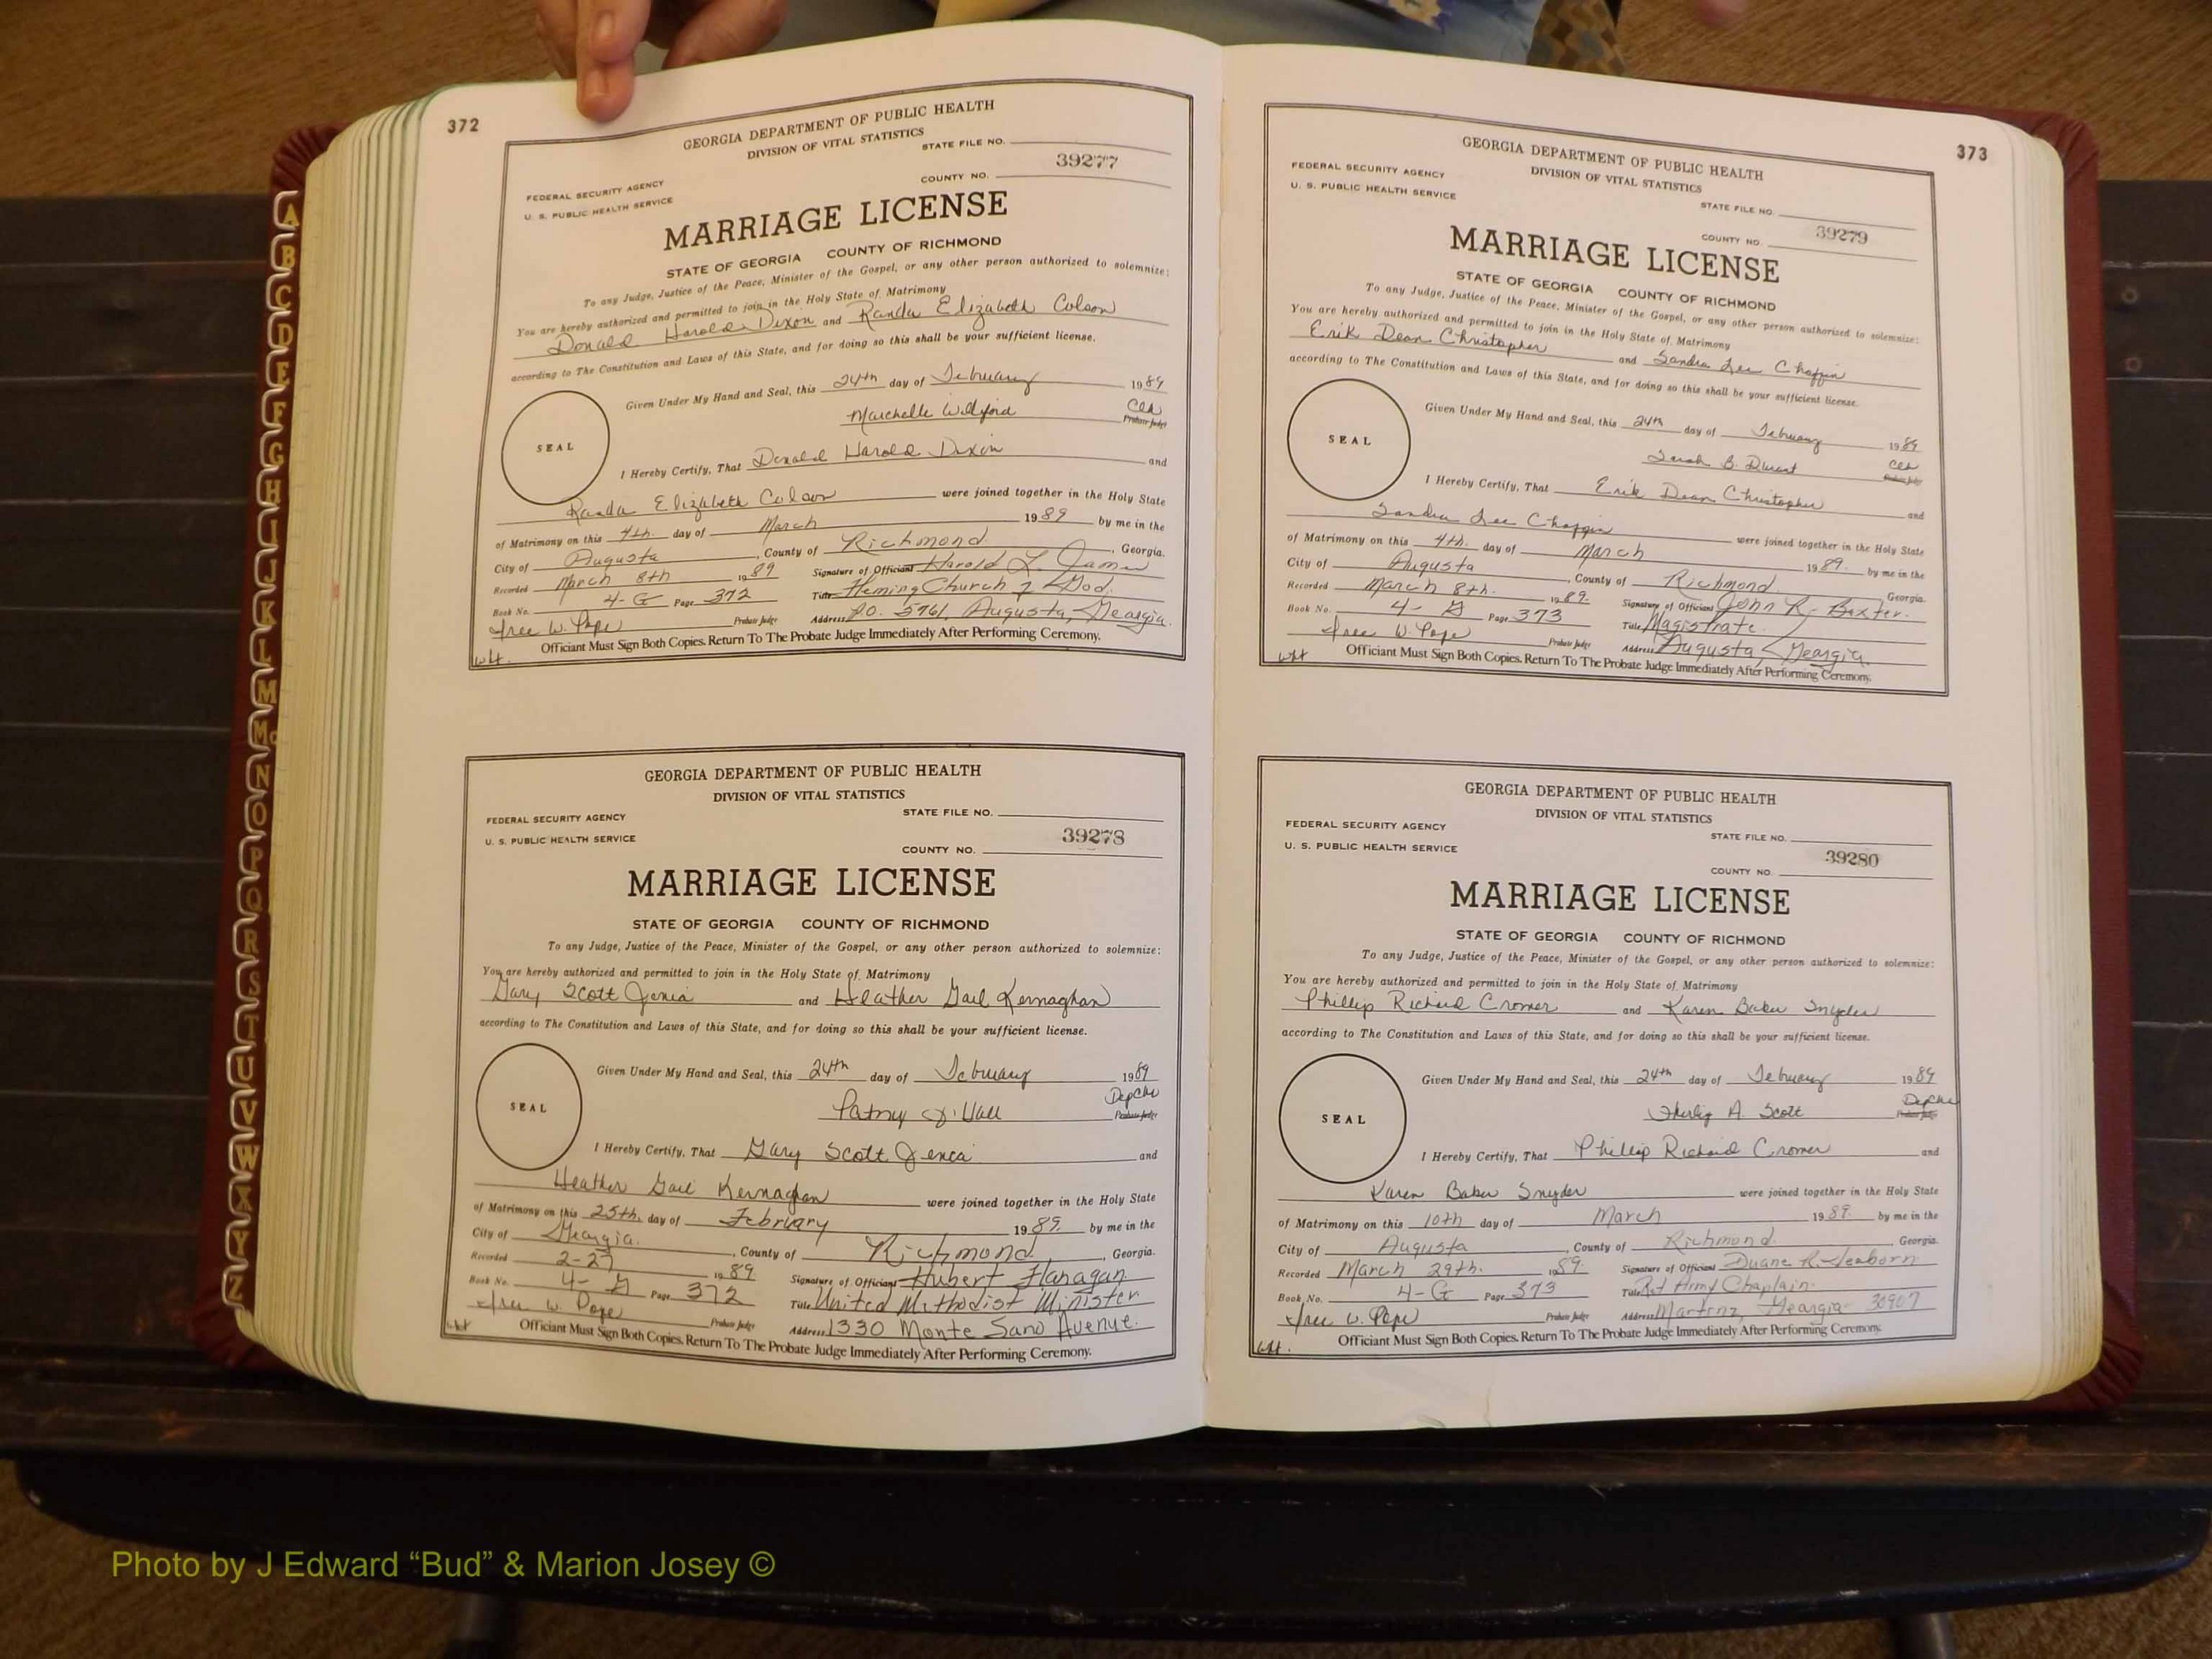 372
GEORGIA DEPARTMENT OF PUBLIC HEALTH
DIVISION OF VITAL STATISTICS
STATE FILE NO.
39277
FEDERAL SECURITY AGENCY
COUNTY NO.
U. S. PUBLIC HEALTH SERVICE
MARRIAGE LICENSE
STATE OF GEORGIA COUNTY OF RICHMOND
To any Judge, Justice of the Peace, Minister of the Gospel, or any other person authorized to solemnize:
You are hereby authorized and permitted to join in the Holy State of Matrimony
Donald Harold Dixon and Randa Elizabeth Colson
according to The Constitution and Laws of this State, and for doing so this shall be your sufficient license.
Given Under My Hand and Seal, this 24th day of February 1989
Marchelle Wilford Clk
Probate Judge
SEAL
I Hereby Certify, That Donald Harold Dixon and
Randa Elizabeth Colson were joined together in the Holy State
of Matrimony on this 4th. day of March 1989 by me in the
City of Augusta, County of Richmond, Georgia.
Recorded March 8th 1989 Signature of Officiant Harold L. James
Book No. 4-G Page 372 Title Fleming Church of God.
Iree W. Pope Probate Judge Address P.O. 5761, Augusta, Georgia.
Officiant Must Sign Both Copies. Return To The Probate Judge Immediately After Performing Ceremony.
GEORGIA DEPARTMENT OF PUBLIC HEALTH
DIVISION OF VITAL STATISTICS
FEDERAL SECURITY AGENCY STATE FILE NO.
39278
U. S. PUBLIC HEALTH SERVICE
COUNTY NO.
MARRIAGE LICENSE
STATE OF GEORGIA COUNTY OF RICHMOND
To any Judge, Justice of the Peace, Minister of the Gospel, or any other person authorized to solemnize:
You are hereby authorized and permitted to join in the Holy State of Matrimony
Gary Scott and Heather Gail Kernaghan
according to The Constitution and Laws of this State, and for doing so this shall be your sufficient license.
Given Under My Hand and Seal, this 24th day of February 1989
Hall Dep Clk
Probate Judge
SEAL
I Hereby Certify, That Gary Scott and
Heather Gail Kernaghan were joined together in the Holy State
of Matrimony on this 25th. day of February 1989. by me in the
City of Georgia., County of Richmond, Georgia.
Recorded 2-27 1989 Signature of Officiant Hubert Flanagan
Book No. 4-G Page 372 Title United Methodist Minister
Iree W. Pope Probate Judge Address 1330 Monte Sano Avenue.
Officiant Must Sign Both Copies. Return To The Probate Judge Immediately After Performing Ceremony.
373
GEORGIA DEPARTMENT OF PUBLIC HEALTH
DIVISION OF VITAL STATISTICS
FEDERAL SECURITY AGENCY
U. S. PUBLIC HEALTH SERVICE
STATE FILE NO.
39279
COUNTY NO.
MARRIAGE LICENSE
STATE OF GEORGIA COUNTY OF RICHMOND
To any Judge, Justice of the Peace, Minister of the Gospel, or any other person authorized to solemnize:
You are hereby authorized and permitted to join in the Holy State of Matrimony
Erik Dean Christopher and Sandra Lee Chaffin
according to The Constitution and Laws of this State, and for doing so this shall be your sufficient license.
Given Under My Hand and Seal, this 24th day of February 1989
Sarah B. Clk
Probate Judge
SEAL
I Hereby Certify, That Erik Dean Christopher and
Sandra Lee Chaffin were joined together in the Holy State
of Matrimony on this 4th. day of March 1989. by me in the
City of Augusta, County of Richmond Georgia.
Recorded March 8th. 1989. Signature of Officiant John R. Baxter.
Book No. 4-G Page 373 Title Magistrate.
Iree W. Pope Probate Judge Address Augusta, Georgia.
Officiant Must Sign Both Copies. Return To The Probate Judge Immediately After Performing Ceremony.
GEORGIA DEPARTMENT OF PUBLIC HEALTH
DIVISION OF VITAL STATISTICS
FEDERAL SECURITY AGENCY
STATE FILE NO.
U. S. PUBLIC HEALTH SERVICE
39280
COUNTY NO.
MARRIAGE LICENSE
STATE OF GEORGIA COUNTY OF RICHMOND
To any Judge, Justice of the Peace, Minister of the Gospel, or any other person authorized to solemnize:
You are hereby authorized and permitted to join in the Holy State of Matrimony
Phillip Richard Cromer and Karen Baker Snyder
according to The Constitution and Laws of this State, and for doing so this shall be your sufficient license.
Given Under My Hand and Seal, this 24th day of February 1989
A. Scott Dep Clk
Probate Judge
SEAL
I Hereby Certify, That Phillip Richard Cromer and
Karen Baker Snyder were joined together in the Holy State
of Matrimony on this 10th day of March 1989. by me in the
City of Augusta, County of Richmond Georgia.
Recorded March 29th. 1989. Signature of Officiant Duane R.
Book No. 4-G Page 373 Title Ret Army Chaplain.
Iree W. Pope Probate Judge Address Martinz, Georgia 30907
Officiant Must Sign Both Copies. Return To The Probate Judge Immediately After Performing Ceremony.
A
B
C
D
E
F
G
H
I
J
K
L
M
Mc
N
O
P
Q
R
S
T
U
V
W
X
Y
Z
Photo by J Edward “Bud” & Marion Josey ©